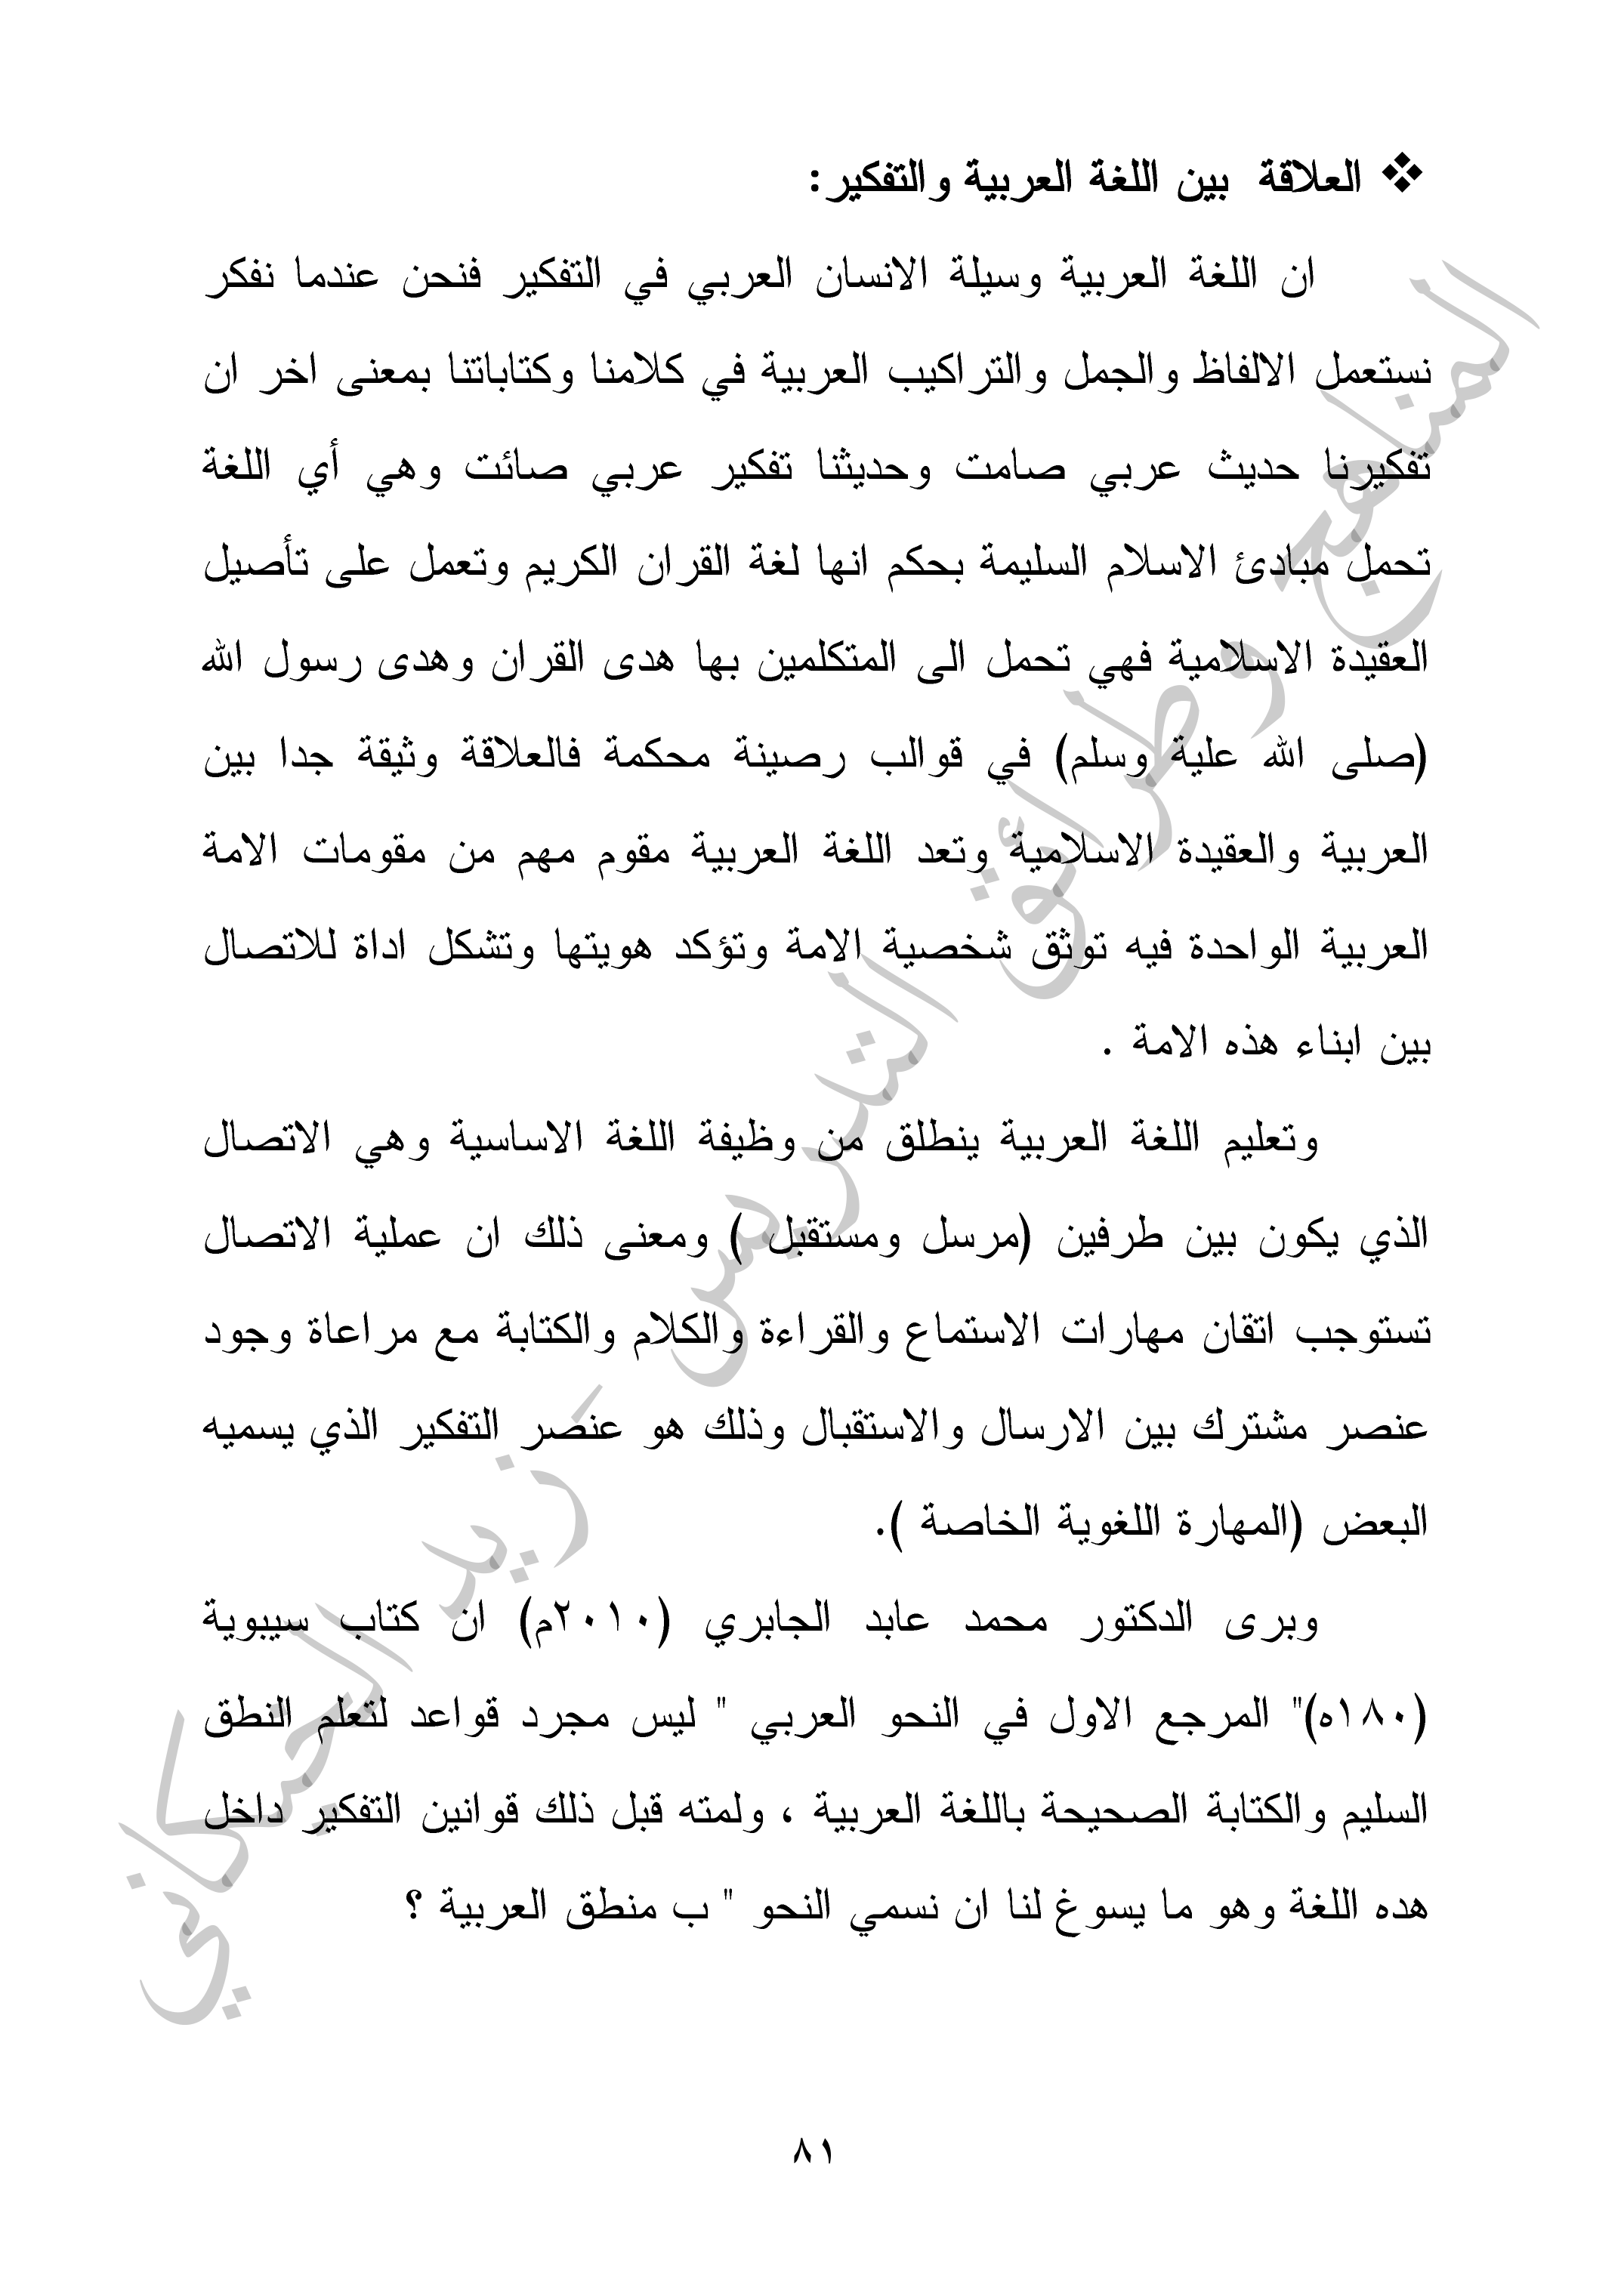 ❖ العلاقة بين اللغة العربية والتفكير:
ان اللغة العربية وسيلة الانسان العربي في التفكير فنحن عندما نفكر
نستعمل الالفاظ والجمل والتراكيب العربية في كلامنا وكتاباتنا بمعنى اخر ان
تفكيرنا حديث عربي صامت وحديثنا تفكير عربي صائت وهي أي اللغة
تحمل مبادئ الاسلام السليمة بحكم انها لغة القران الكريم وتعمل على تأصيل
العقيدة الاسلامية فهي تحمل الى المتكلمين بها هدى القران وهدى رسول الله
(صلى الله علية وسلم) في قوالب رصينة محكمة فالعلاقة وثيقة جدا بين
العربية والعقيدة الاسلامية وتعد اللغة العربية مقوم مهم من مقومات الامة
العربية الواحدة فيه توثق شخصية الامة وتؤكد هويتها وتشكل اداة للاتصال
بين ابناء هذه الامة .
وتعليم اللغة العربية ينطلق من وظيفة اللغة الاساسية وهي الاتصال
الذي يكون بين طرفين (مرسل ومستقبل ) ومعنى ذلك ان عملية الاتصال
تستوجب اتقان مهارات الاستماع والقراءة والكلام والكتابة مع مراعاة وجود
عنصر مشترك بين الارسال والاستقبال وذلك هو عنصر التفكير الذي يسميه
البعض (المهارة اللغوية الخاصة ).
وبرى الدكتور محمد عابد الجابري (٢٠١٠م) ان كتاب سيبوية
(١٨٠ه)" المرجع الاول في النحو العربي " ليس مجرد قواعد لتعلم النطق
السليم والكتابة الصحيحة باللغة العربية ، ولمته قبل ذلك قوانين التفكير داخل
هده اللغة وهو ما يسوغ لنا ان نسمي النحو " ب منطق العربية ؟
المناهج وطرائق التدريس - زيد الحيكاني
٨١